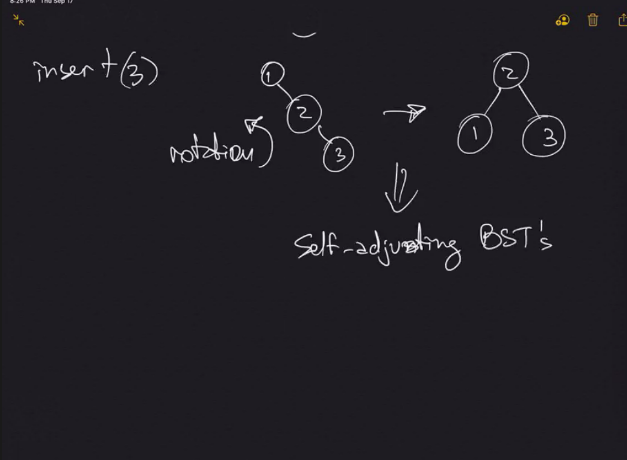 8:26 PM Thu Sep 17
insert(3)
1
2
3
rotation
2
1
3
Self-adjusting BST's